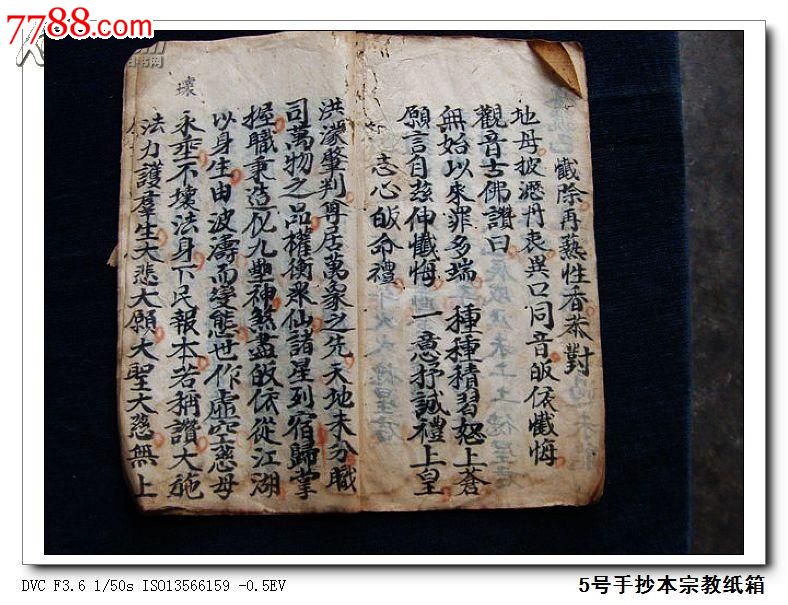 7788.com
书网
懴除再爇性香恭對
地母披瀝丹衷異口同音皈依懴悔
觀音古佛讚曰
無始以來罪多端 種種積習怒上蒼
願言自玆伸懴悔 一意抒誠禮上皇
志心皈命禮
洪濛肇判尊居萬象之先天地未分職
司萬物之品權衡衆仙諸星列宿歸掌
握職秉造化九壘神煞盡皈依從江湖
以身生由波濤而變態世作虛空慈母
永乖不壞法身下民報本若稱讚大施
法力護羣生大悲大願大聖大慈無上
壞
DVC F3.6 1/50s ISO13566159 -0.5EV
5号手抄本宗教纸箱